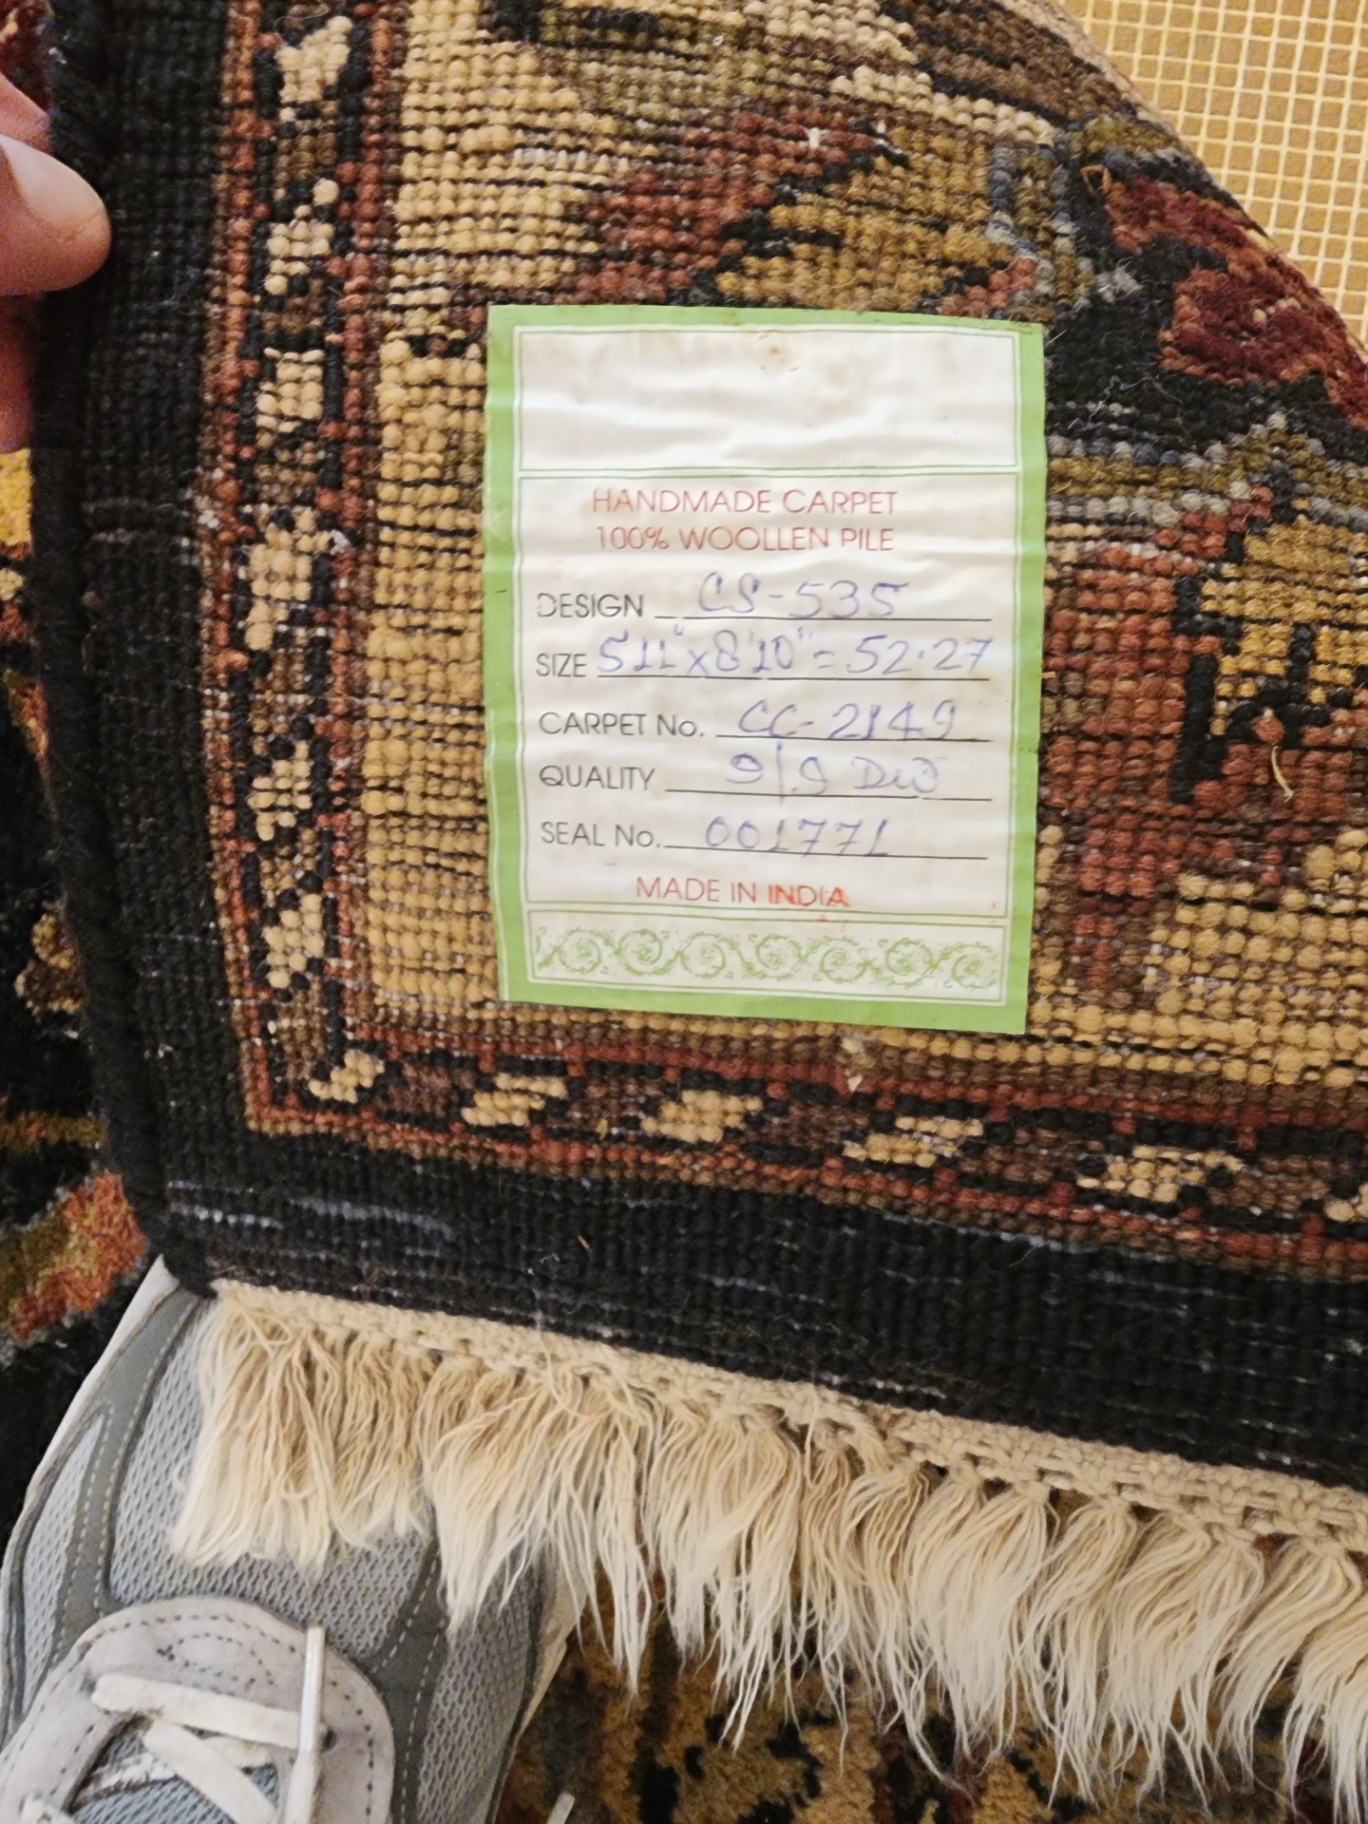 HANDMADE CARPET
100% WOOLLEN PILE
DESIGN CS-535
SIZE 5'11" x 8'10" = 52.27
CARPET No. CC-2149
QUALITY 9/9
SEAL No. 001771
MADE IN INDIA